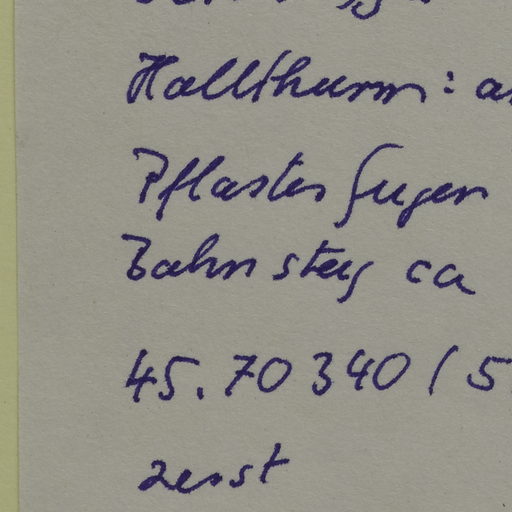 Hallthurm: a
Pflasterfugen
Bahnsteig ca
45.70 340 / 5
zerst